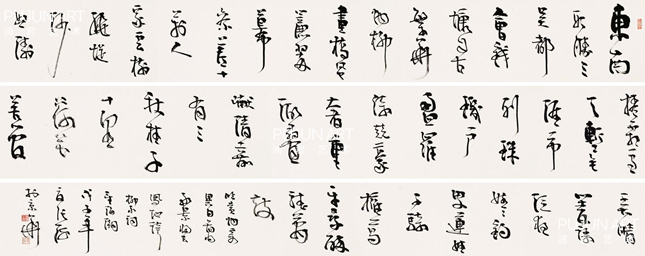 東南
形勝三
吳都
會錢
塘自古
繁華
煙柳
畫橋風
簾翠
幕
參差十
萬人
家雲樹
繞堤
沙
怒濤
卷霜雪
天塹無
涯市
列珠
璣戶
盈羅
綺競豪
奢重
湖疊
巘清嘉
有三
秋桂子
十里
荷花
羌管
弄晴
菱歌
泛夜
嬉嬉釣
叟蓮娃
千騎
擁高
牙乘醉
聽簫
鼓
吟賞煙霞
異日圖將
好景歸去
鳳池誇
柳永詞
望海潮
戊子年